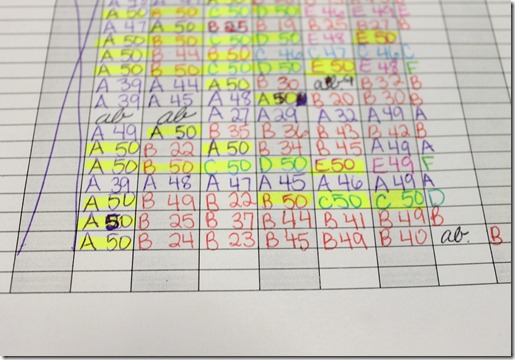 A 50 B 50 C 50 D 50
A 50 B 25 B 19 B 25 B 27 B
A 50 B 50 C 50 D 50 E 48 E 50
A 50 B 50 B 50 C 46 C 47 C
A 50 B 50 C 50 D 50 E 50 E 48 F
A 39 A 44 A 50 B 30 B 32 B
A 39 A 45 A 48 A 50 B 20 B 30 B
ab ab A 27 A 29 A 32 A 49 A
A 49 A 50 B 35 B 36 B 43 B 42 B
A 50 B 22 A 50 B 34 B 45 A 49 A
A 50 B 50 C 50 D 50 E 50 E 49 F
A 39 A 48 A 47 A 45 A 46 A 49 A
A 50 B 49 B 22 B 50 C 50 C 50 D
A 50 B 25 B 37 B 44 B 41 B 49 B
A 50 B 24 B 23 B 45 B 49 B 40 ab. B